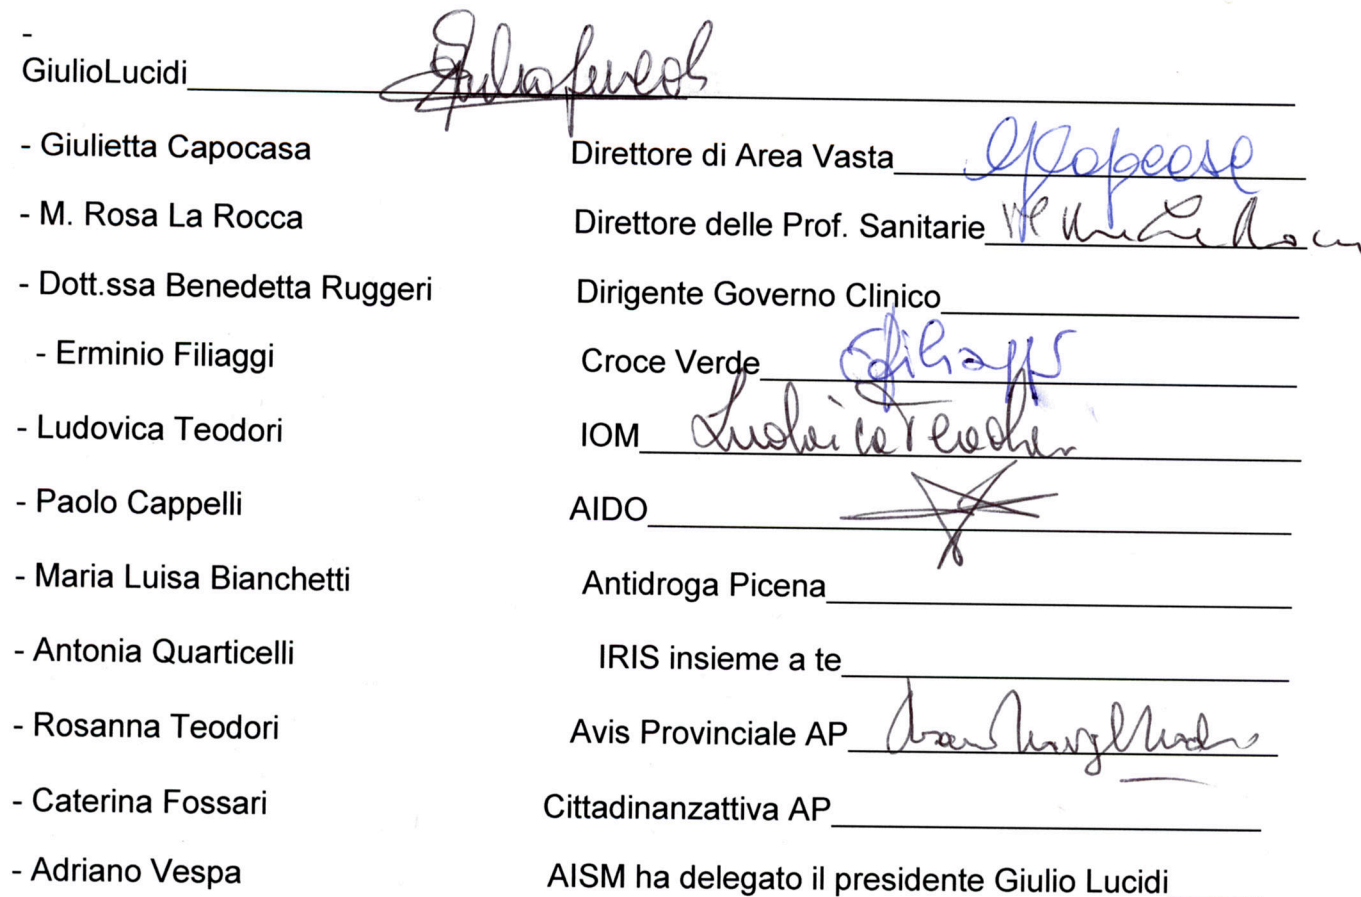 -
GiulioLucidi Giulio Lucidi
- Giulietta Capocasa Direttore di Area Vasta
- M. Rosa La Rocca Direttore delle Prof. Sanitarie
- Dott.ssa Benedetta Ruggeri Dirigente Governo Clinico
- Erminio Filiaggi Croce Verde
- Ludovica Teodori IOM Ludovica Teodori
- Paolo Cappelli AIDO
- Maria Luisa Bianchetti Antidroga Picena
- Antonia Quarticelli IRIS insieme a te
- Rosanna Teodori Avis Provinciale AP
- Caterina Fossari Cittadinanzattiva AP
- Adriano Vespa AISM ha delegato il presidente Giulio Lucidi